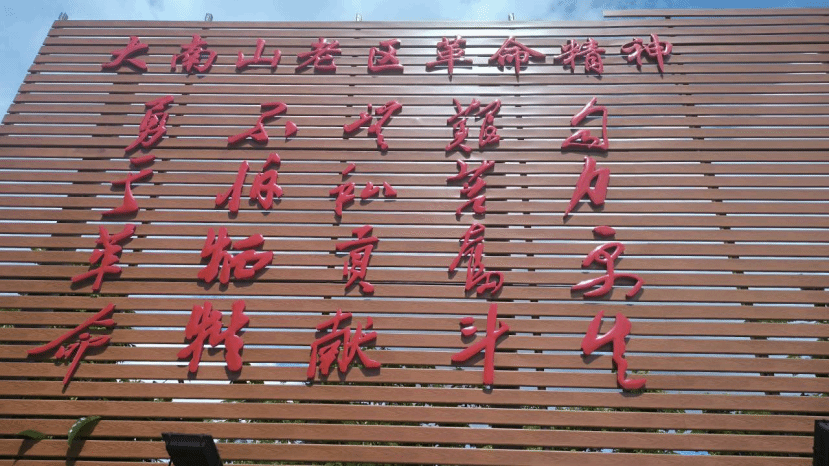 大南山老区革命精神
勇于革命
不怕牺牲
无私貢献
艱苦奮斗
自力更生